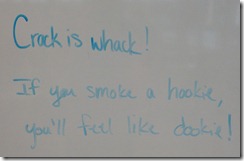 Crack is whack!
If you smoke a hookie,
you'll feel like dookie!